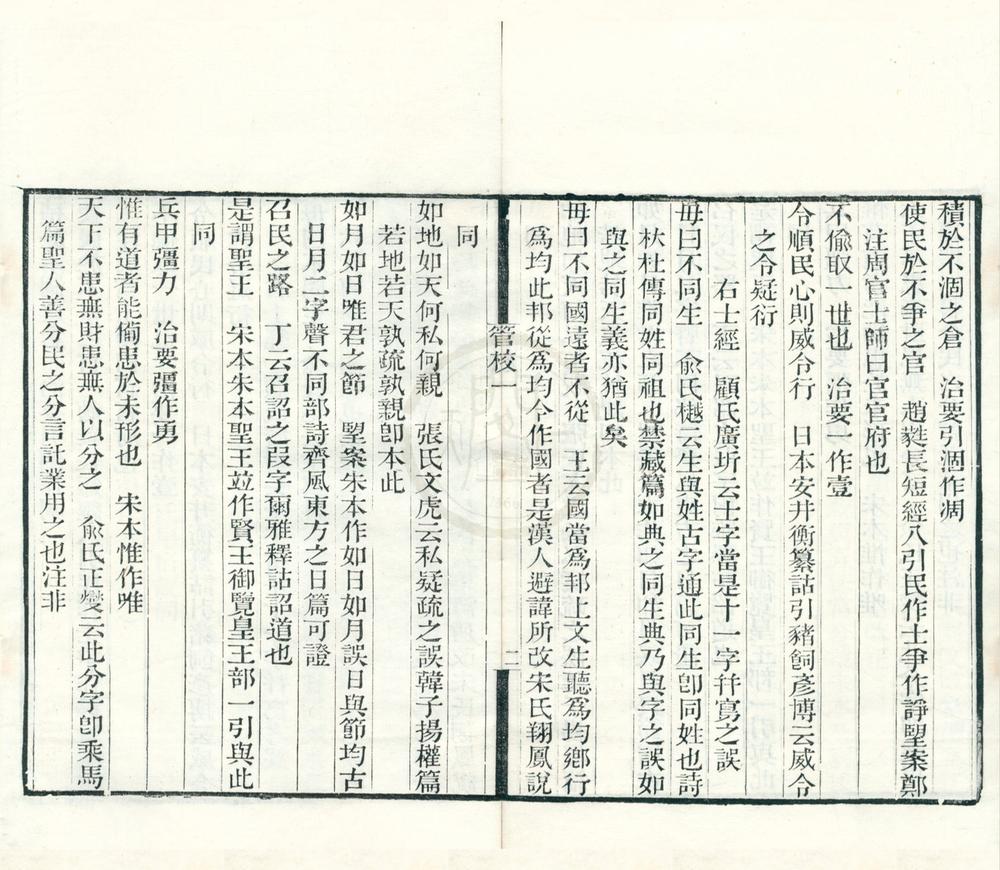 積於不涸之倉　治要引涸作凋
使民於不爭之官　趙蕤長短經八引民作士爭作諍朢案鄭
注周官士師曰官官府也
不偷取一世也　治要一作壹
令順民心則威令行　日本安井衡纂詁引豬飼彥博云威令
之令疑衍
右士經　顧氏廣圻云士字當是十一字幷寫之誤
毋曰不同生　俞氏樾云生與姓古字通此同生卽同姓也詩
杕杜傳同姓同祖也禁藏篇如典之同生典乃與字之誤如
與之同生義亦猶此矣
毋曰不同國遠者不從　王云國當爲邦上文生聽爲均鄉行
爲均此邦從爲均今作國者是漢人避諱所改宋氏翔鳳說
管校一
二
同
如地如天何私何親　張氏文虎云私疑疏之誤韓子揚權篇
若地若天孰疏孰親卽本此
如月如日唯君之節　朢案朱本作如日如月誤日與節均古
日月二字聲不同部詩齊風東方之日篇可證
召民之路　丁云召詔之叚字爾雅釋詁詔道也
是謂聖王　宋本朱本聖王竝作賢王御覽皇王部一引與此
同
兵甲彊力　治要彊作勇
惟有道者能備患於未形也　宋本惟作唯
天下不患無財患無人以分之　俞氏正燮云此分字卽乘馬
篇聖人善分民之分言託業用之也注非